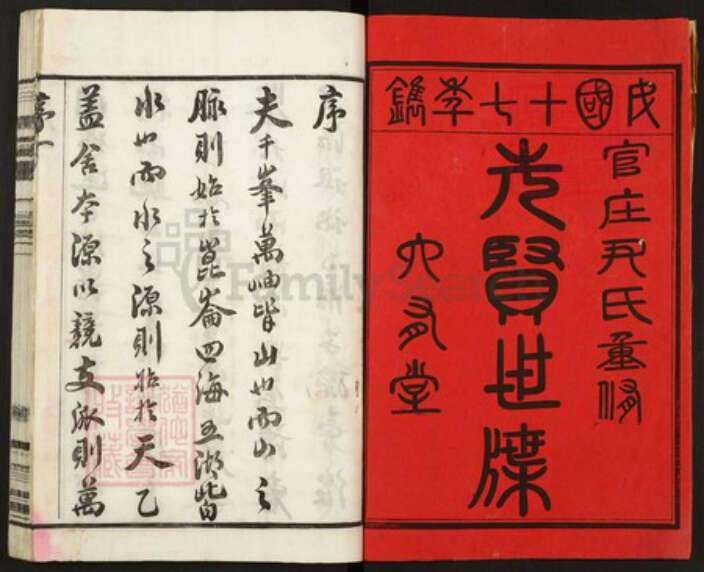 民國十七季鐫
官庄尹氏重脩
先賢世牒
六有堂
序
夫千峯萬岫皆山也而山之
脉則始於崑崙四海五湖皆
水也而水之源則始於天乙
蓋舍本源以競支派則萬
序一
FamilySearch